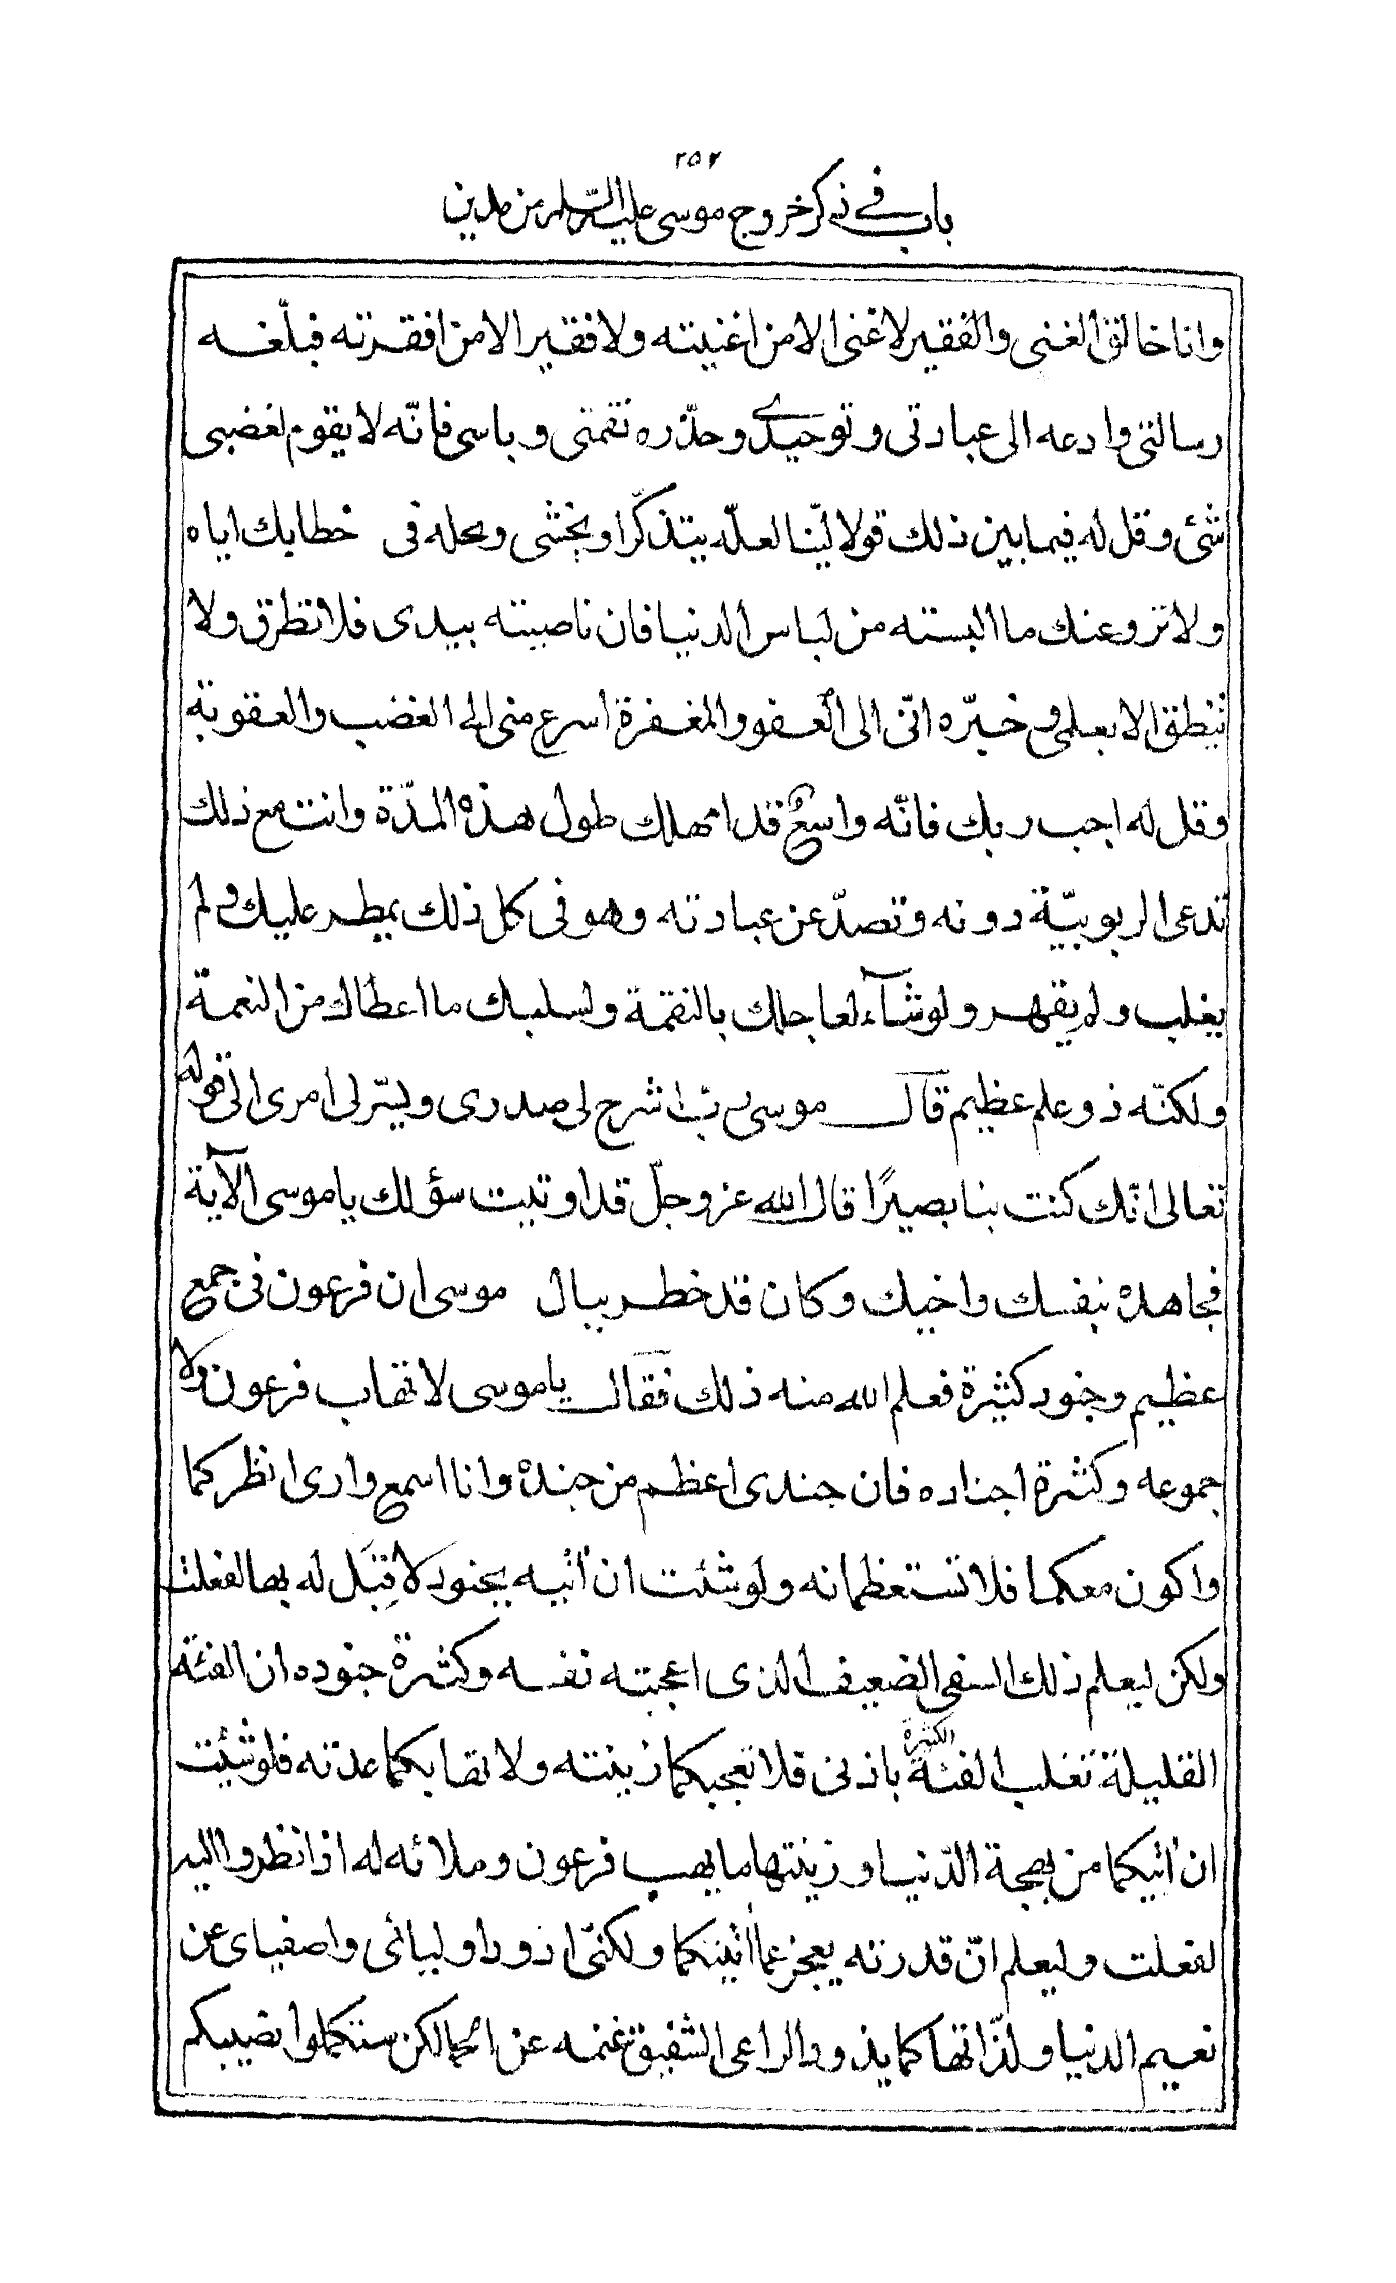 ٢٥٢
باب في ذكر خروج موسى عليه السلام من مدين
وانا خالق الغنى والفقير لا غنى الا من اغنيته ولا فقير الا من افقرته فبلّغه
رسالتى وادعه الى عبادتى وتوحيدي وحذّره نقمتى وباسى فانّه لا يقوم لغضبى
شئ وقل له فيما بين ذلك قولا ليّنا لعلّه يتذكّر او يخشى وعجله فى خطابك اياه
ولا تروعنك ما البسته من لباس الدنيا فان ناصيته بيدى فلا تطرق ولا
تنطق الا بعلمى خبّره انّى الى العفو والمغفرة اسرع منى الى الغضب والعقوبة
وقل له اجب ربك فانّه واسع قد امهلك طول هذه المدّة وانت مع ذلك
تدعى الربوبيّة دونه وتصدّ عن عبادته وهو فى كل ذلك يمطر عليك ولم
يغلب ولم يقهر ولو شآء لعاجلك بالنقمة ولسلبك ما اعطاك من النعمة
ولكنّه ذو علم عظيم قال موسى رب اشرح لى صدرى ويسّر لى امرى الى قوله
تعالى انّك كنت بنا بصيرًا قال الله عز وجلّ قد اوتيت سؤلك يا موسى الآية
فجاهده بنفسك واخيك وكان قد خطر ببال موسى ان فرعون فى جمع
عظيم وجنود كثيرة فعلم الله منه ذلك فقال يا موسى لا تهاب فرعون ولا
جموعه وكثرة اجناده فان جندى اعظم من جنده وانا اسمع وارى انظر كما
واكون معكما فلا تستعظمانه ولو شئت ان أتيه بجنود لا قِبَل له بها لفعلت
ولكن ليعلم ذلك السفى الضعيف الذى اعجبته نفسه وكثرة جنوده ان الفئة
القليلة تغلب الفئة الكثيرة باذنى فلا تعجبكما زينته ولا تهابكما عدته فلو شئيت
ان أتيكما من بهجة الدّنيا وزينتها ما يهب فرعون وملائه له اذا نظروا اليه
لفعلت وليعلم انّ قدرته يعجز عما أتيتكما ولكنّى اذود اوليائى واصفياى عن
نعيم الدنيا ولذّاتها كما يذود الراعى الشفيق غنمه عن لكن ستكملوا نصيبكم